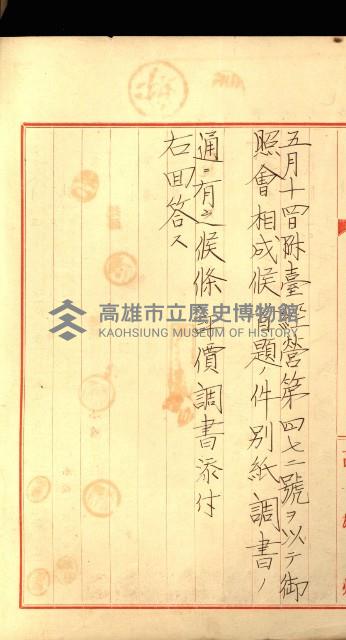 五月十四日附臺經營第四七二號ヲ以テ御
照會相成候首題ノ件別紙調書ノ
通ニ有之候條 價調書添付
右回答ス
高雄市立歷史博物館
KAOHSIUNG MUSEUM OF HISTORY